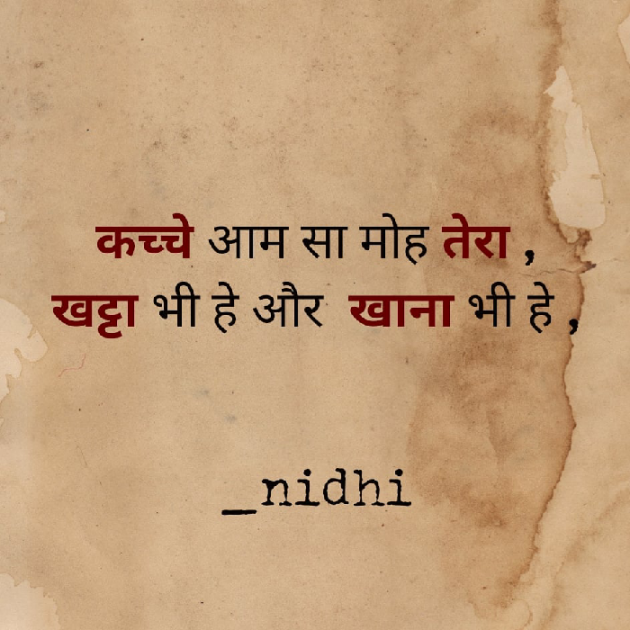 कच्चे आम सा मोह तेरा ,
खट्टा भी हे और खाना भी हे ,
_nidhi